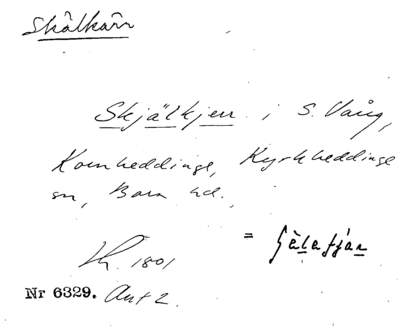 Skälkärr
Skjälkjerr i S. Vång,
Kornheddinge, Kyrkheddinge
sn, Bara hd.,
=
Lh. 1801
Nr 6329. Ant 2.